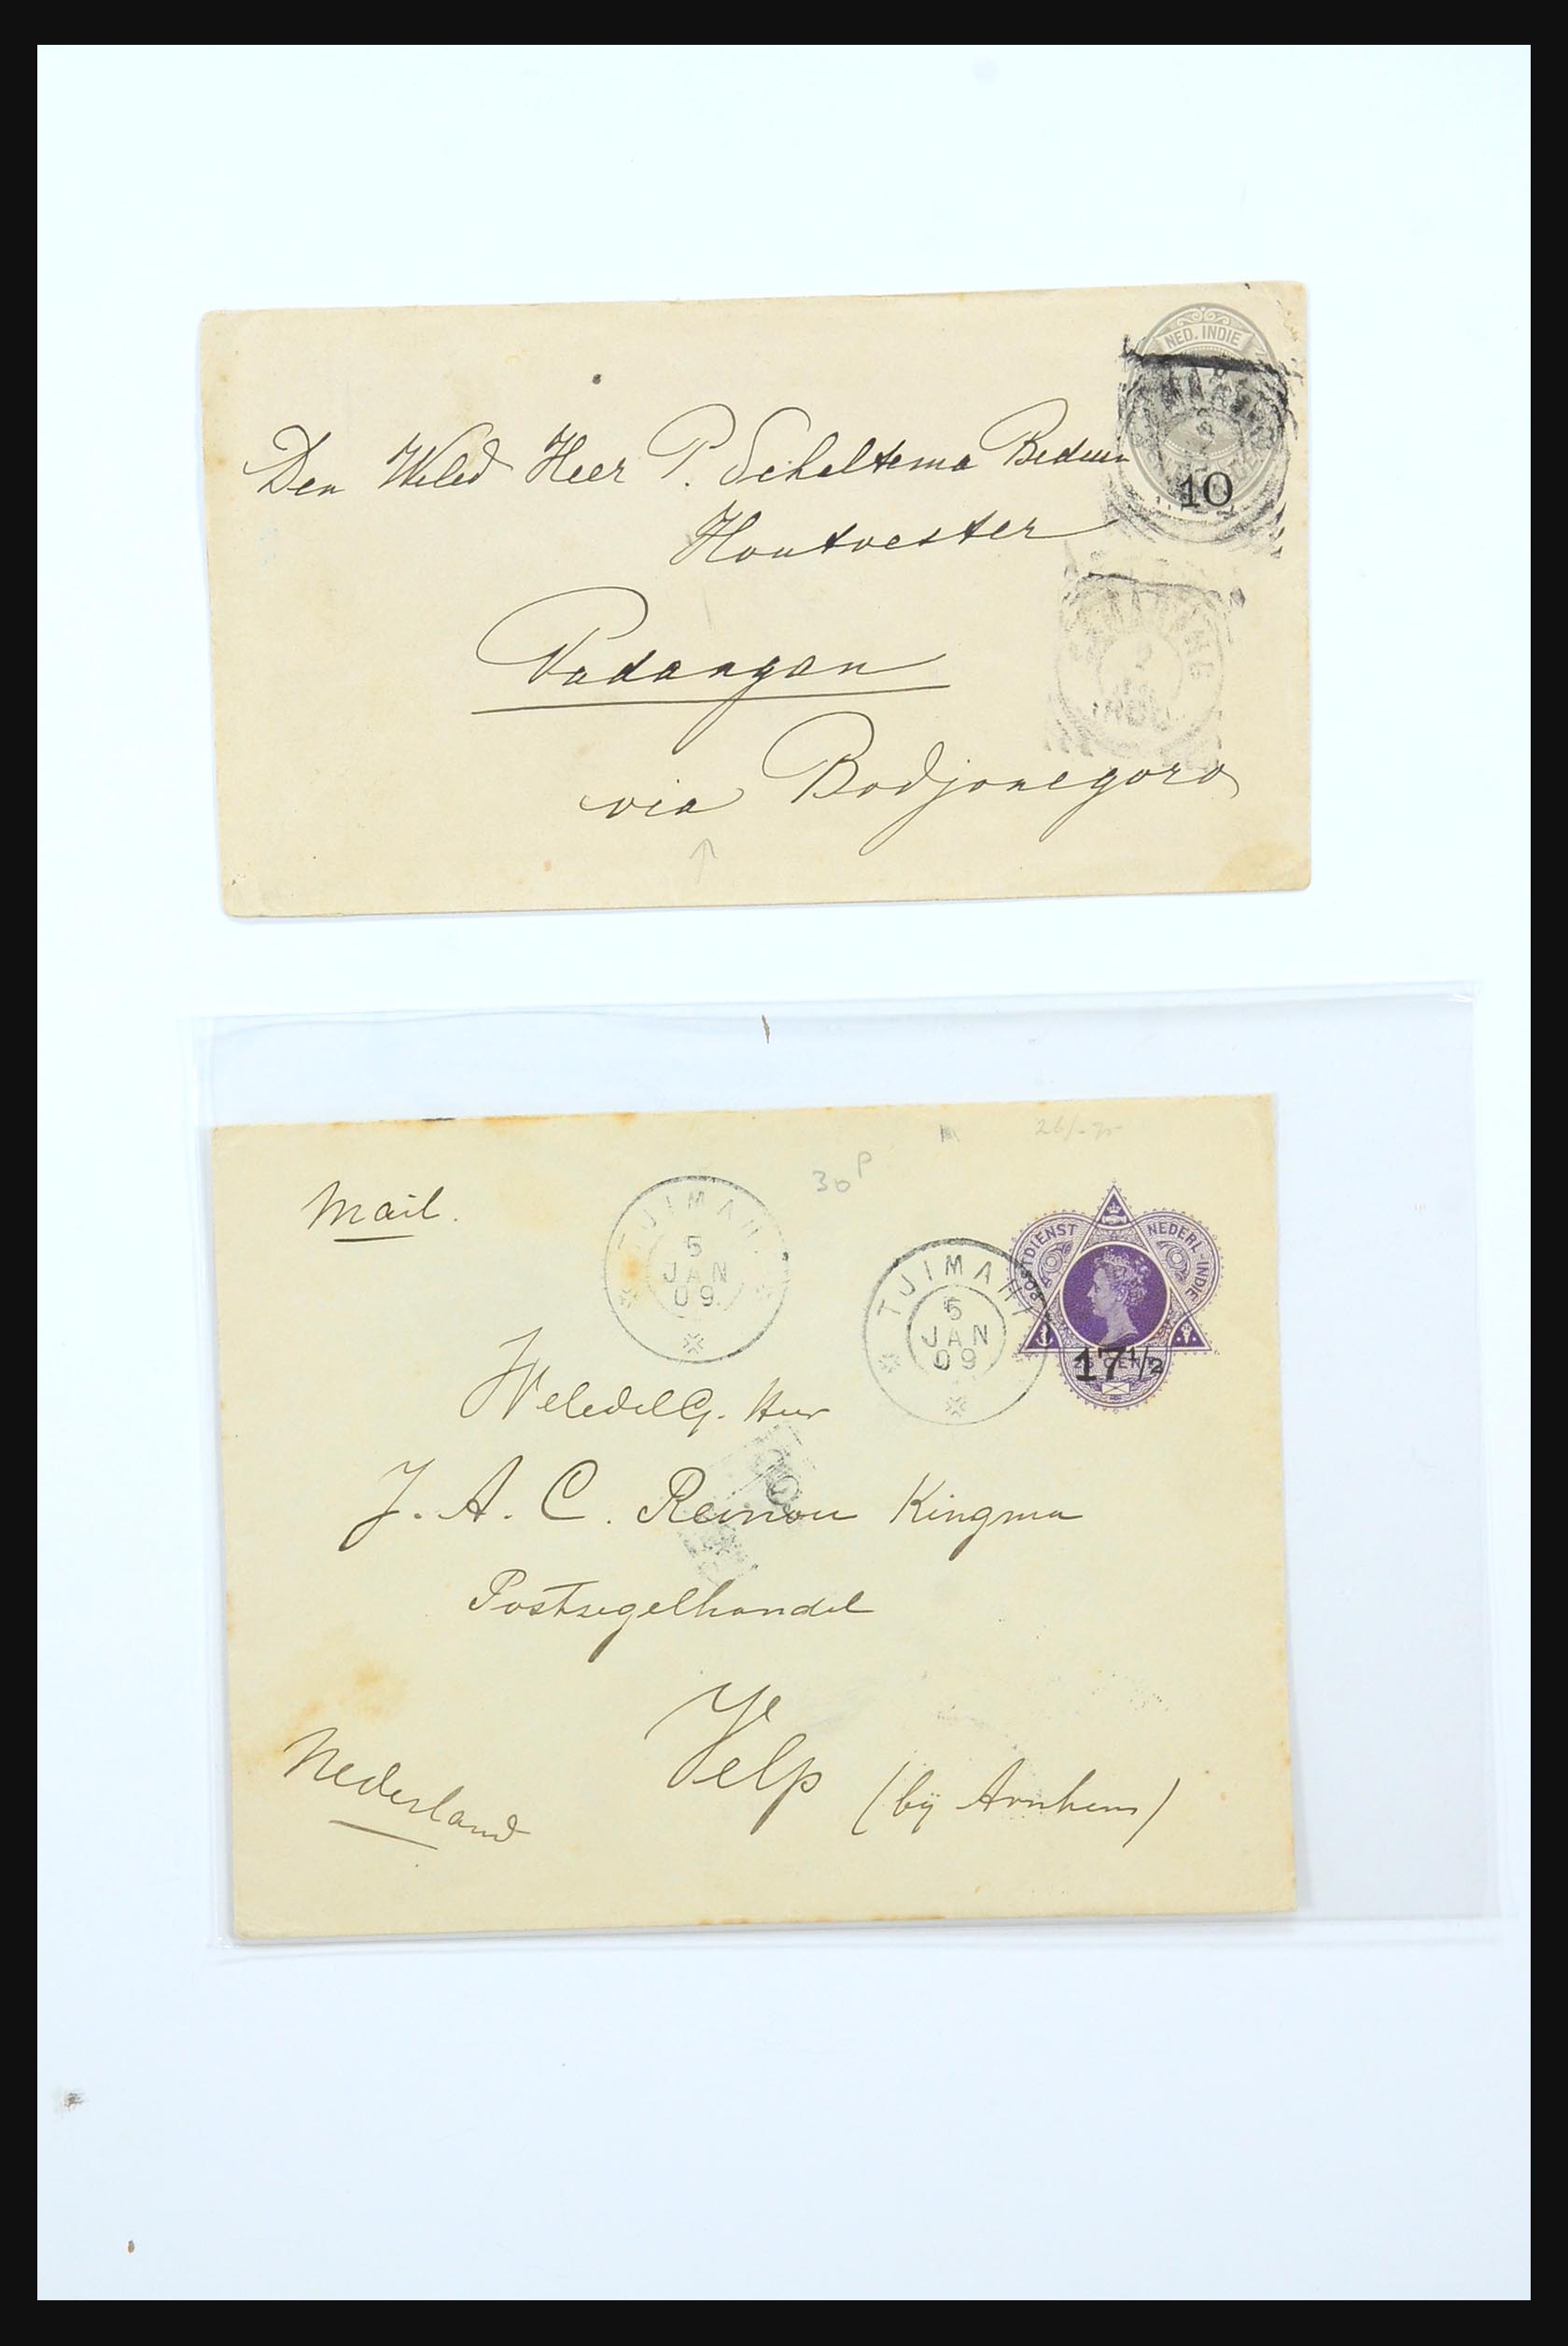 NED. INDIE
Den Weled Heer P. Scheltema Beduin
10
Houtvester
Padangan
via Bodjonegoro
30
Mail.
TJIMAHI
5
JAN
09
TJIMAHI
5
JAN
09
POSTDIENST NEDERL-INDIE
17 1/2
WeledelG. Heer
J. A. C. Reinou Kingma
Postzegelhandel
Velp (bij Arnhem)
Nederland